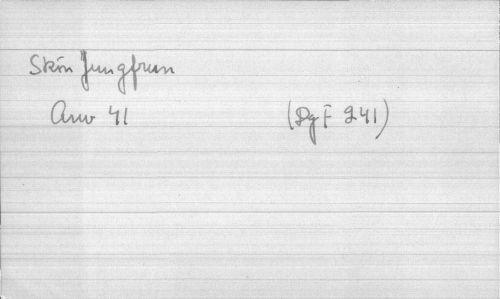 Skön Jungfrun
Arw 41 (DgF 241)